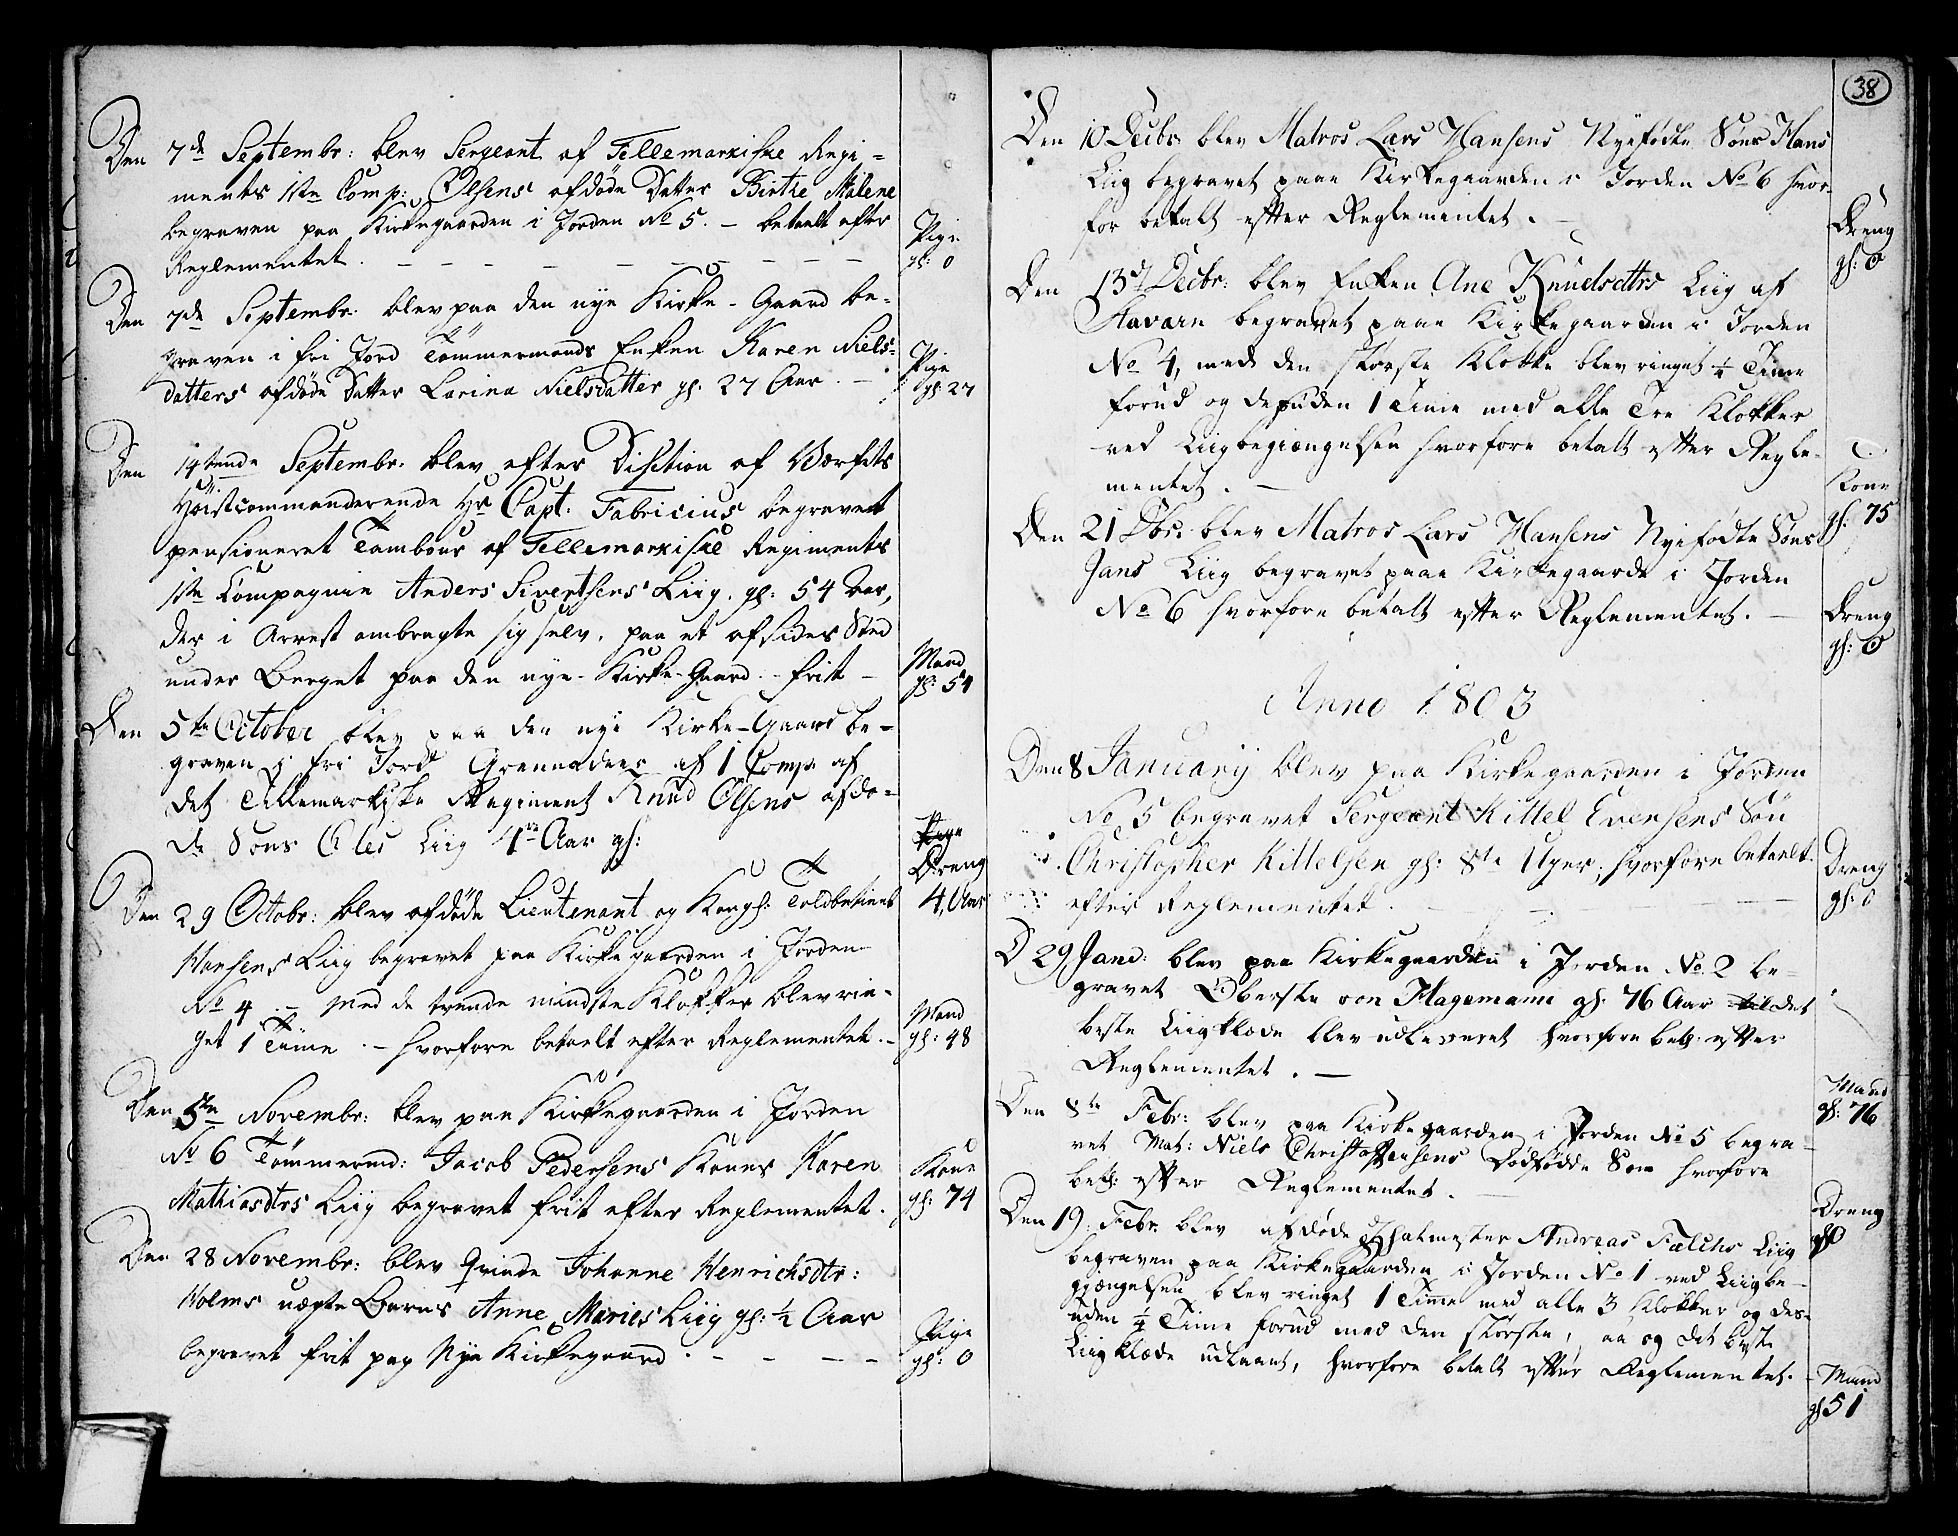 Den 7de Septembr: blev Sergeant af Tellemarkiske Regi=
ments 1ste Comp: Olsens afdøde Datter Birthe Malene
begraven paa Kirkegaarden i Jorden No 5. – betaelt efter
Reglementet. – – – – – – – –
Pige
gl: 0
Den 7de Septembr. blev paa den nye Kirke-Gaard be-
graven i fri Jord Tømmermands Enken Karen Niels-
datters afdøde Datter Larina Nielsdatter gl. 27 Aar. –
Pige
gl: 27
Den 14tende Septembr. blev efter Disction af Værfets
Høistcommanderende Hr Capt. Fabricius begravet
pensioneret Tambour af Tellemarkiske Regiments
1ste Compagnie Anders Sivertsens Liig. gl: 54 Aar,
der i Arrest ombragte sig selv, paa et afsides Sted
under Berget paa den nye Kirke-Gaard – frit –
Mand
gl: 54
Den 5te October blev paa den nye Kirke-Gaard be-
graven i fri Jord Grennadeer af 1 Comp. af
det Tellemarkiske Regiment Knud Olsens afdø-
de Søns Oles Liig 4re Aar gl:
Pige
Dreng
4 Aar
Den 29 Octobr: blev afdøde Lieutenant og Kongl: Toldbetient
Hansens Liig begravet paa Kirkegaarden i Jorden
No 4 – Med de trende mindste Klokker blev rin-
get 1 Time. – hvorfore betaelt efter Reglementet. –
Mand
gl: 48
Den 5te Novembr: blev paa Kirkegaarden i Jorden
No 6 Tømmermd: Jacob Pedersens Kones Karen
Mathiasdtrs Liig begravet frit efter Reglementet.
Kone
gl: 74
Den 28 Novembr: blev Qvinde Johanne Henrichsdtr:
Holms uægte Barns Anne Maries Liig gl: ½ Aar
begravet frit paa Nye Kirkegaard. – – – –
Pige
gl: 0
38
Den 10 Decbr. blev Matros Lars Hansens Nyefødte Søns Hans
Liig begravet paae Kirkegaarden i Jorden No 6 hvor-
for betalt efter Reglementet. –
Dreng
gl: 0
Den 13de Decbr: blev Enken Ane Knudsdttrs Liig af
Staværn begravet paae Kirkegaarden i Jorden
No 4, med den største Klokke blev ringet ¼ Time
forud og desuden 1 Time med alle Tre Klokker
ved Liigbegiængelsen hvorfore betalt efter Regle-
mentet. –
Kone
gl: 75
Den 21 Dbr: blev Matros Lars Hansens Nyefødte Søns
Jans Liig begravet paae Kirkegaarde i Jorden
No 6 hvorfore betalt efter Reglementet. –
Dreng
gl: 0
Anno 1803
Den 8 January blev paa Kirkegaarden i Jorden
No 5 begravet Sergeant Kittel Evensens Søn
Christopher Kittelsen gl: 8te Uger, hvorføre betaelt
efter Reglementet. – – – –
Dreng
gl: 0
D 29 Janu: blev paa Kirkegaarden i Jorden No 2 be-
gravet Oberste von Hagemann gl: 76 Aar til det
beste Liigklæde blev udleveret hvorfore bet: efter
Reglementet. –
Mand
gl: 76
Den 8te Febr: blev paa Kirkegaarden i Jorden No 5 begra-
vet Mat: Niels Christophersens Dødfødde Søn hvorfore
bet: efter Reglementet. –
Dreng
gl 0
Den 19. Febr. blev afdøde Skolmester Andreas Falchs Liig
begraven paa Kirkegaarden i Jorden No 1 ved Liigbe-
gjængelsen blev ringet 1 Time med alle 3 Klokker og des-
uden ¼ Time forud med den største, aa og det beste
Liigklæde udlaant, hvorfore betalt efter Reglementet. –
Mand
gl 51